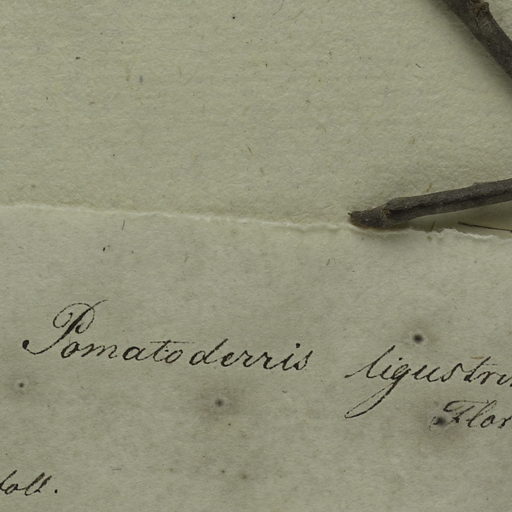 Pomatoderris ligustri
Flor
foll.